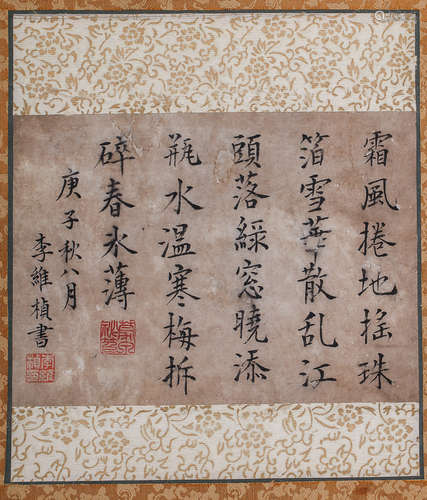 霜風捲地搖珠
箔雪華散乱江
頭落綠窓曉添
瓶水温寒梅拆
碎春氷薄
庚子秋八月
李維楨書